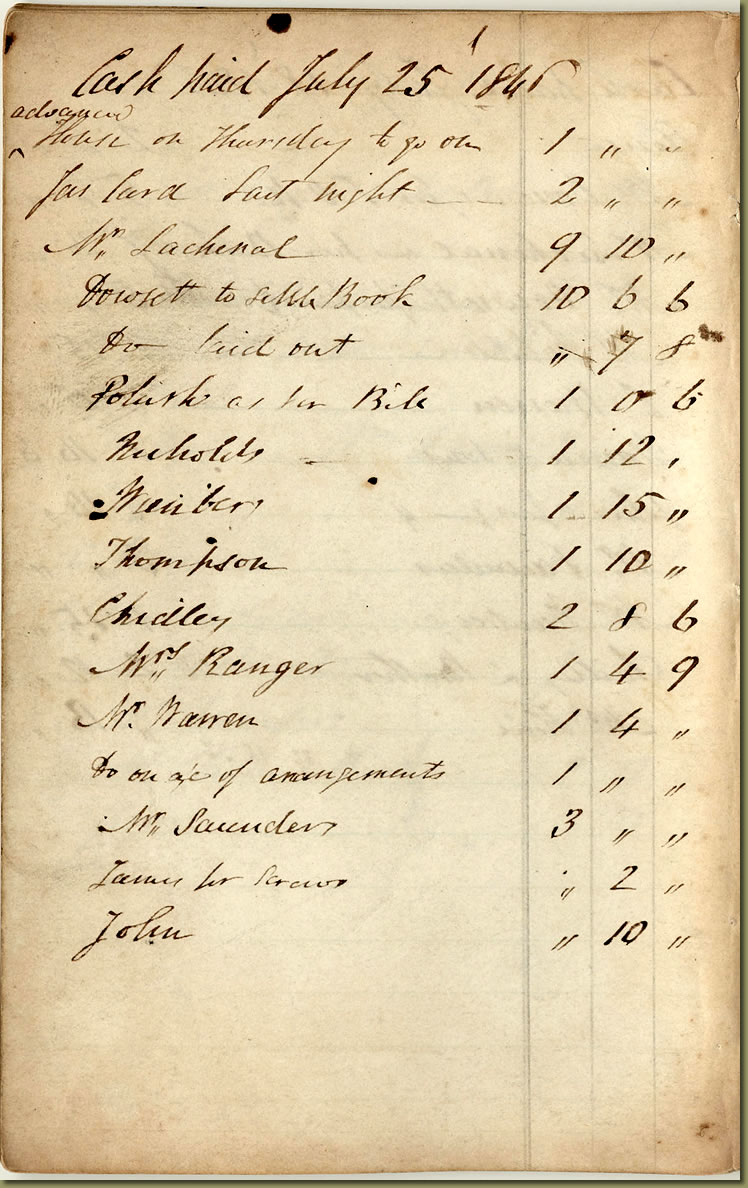 Cash paid July 25 1846
advanced
House on Thursday to go on 1 " "
Jas Card Last night 2 " "
Mr Lachenal 9 10 "
Dowsett to settle Book 10 6 6
Do laid out " 7 8
Polish as per Bill 1 0 6
Nicholds 1 12 "
1 15 "
Thompson 1 10 "
Chidley 2 8 6
Mrs Ranger 1 4 9
Mr. Warren 1 4 "
Do on a/c of arrangements 1 " "
Mr Saunders 3 " "
James for Screws " 2 "
John " 10 "